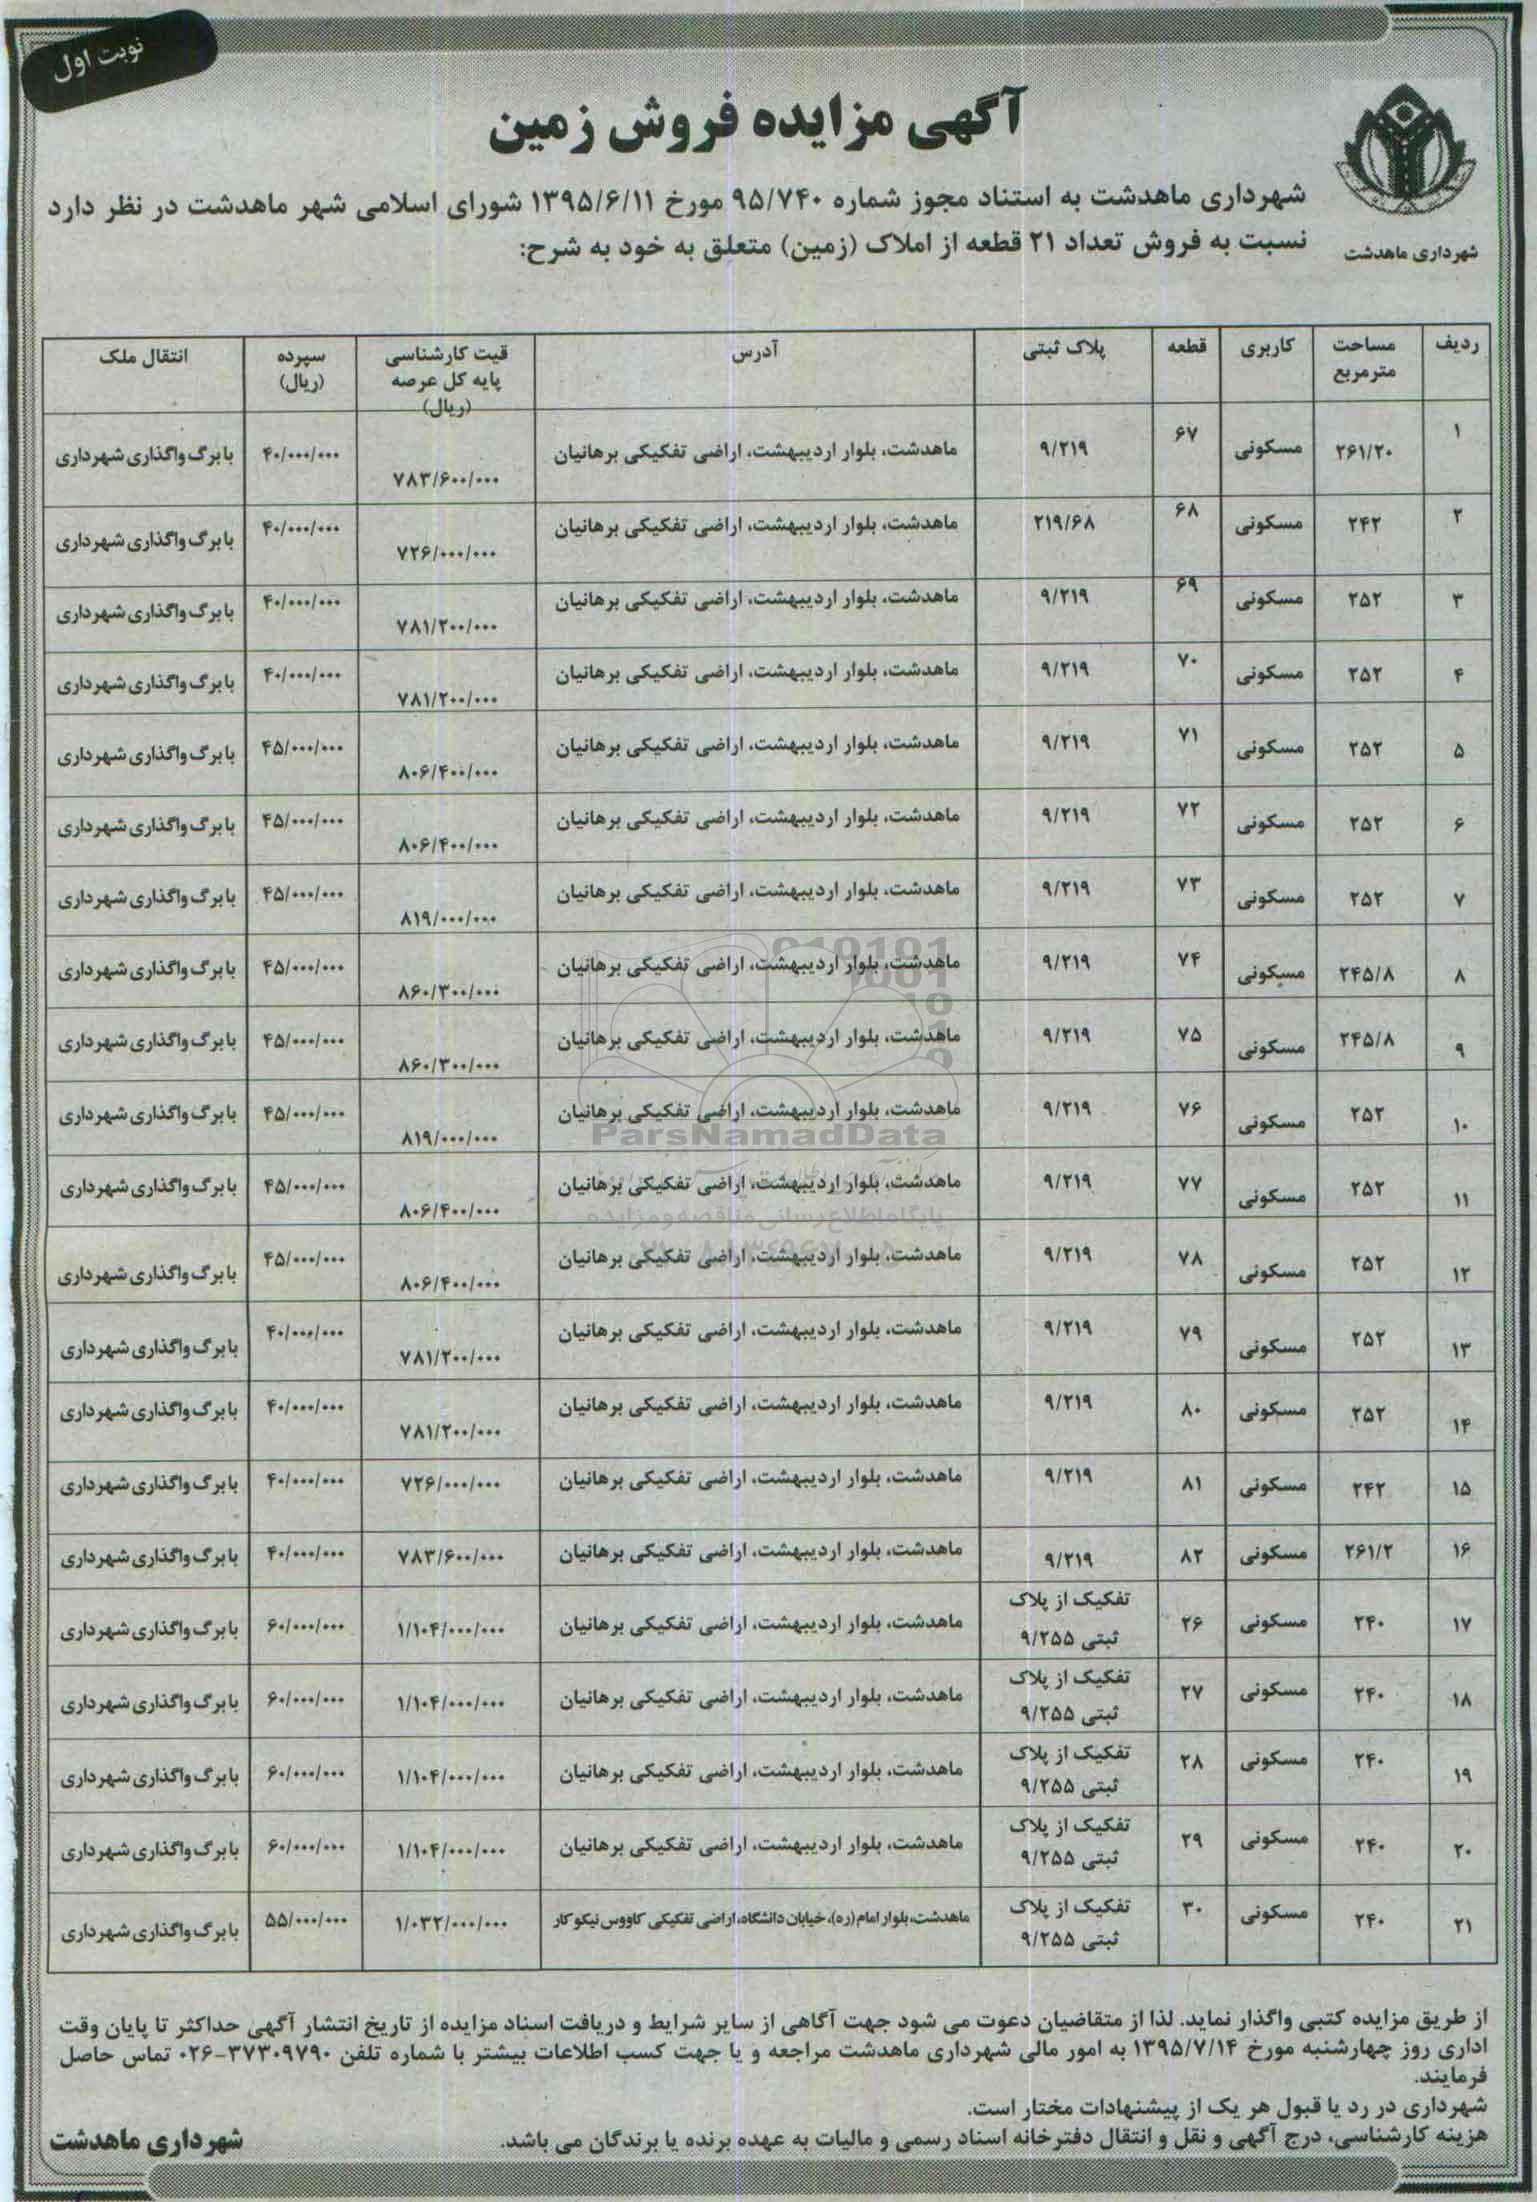 نوبت اول
آگهی مزایده فروش زمین
شهرداری ماهدشت
شهرداری ماهدشت به استناد مجوز شماره ۹۵/۷۴۰ مورخ ۱۳۹۵/۶/۱۱ شورای اسلامی شهر ماهدشت در نظر دارد
نسبت به فروش تعداد ۲۱ قطعه از املاک (زمین) متعلق به خود به شرح:
ردیف | مساحت مترمربع | کاربری | قطعه | پلاک ثبتی | آدرس | قیت کارشناسی پایه کل عرصه (ریال) | سپرده (ریال) | انتقال ملک
۱ | ۲۶۱/۲۰ | مسکونی | ۶۷ | ۹/۲۱۹ | ماهدشت، بلوار اردیبهشت، اراضی تفکیکی برهانیان | ۷۸۳/۶۰۰/۰۰۰ | ۴۰/۰۰۰/۰۰۰ | با برگ واگذاری شهرداری
۲ | ۲۴۲ | مسکونی | ۶۸ | ۲۱۹/۶۸ | ماهدشت، بلوار اردیبهشت، اراضی تفکیکی برهانیان | ۷۲۶/۰۰۰/۰۰۰ | ۴۰/۰۰۰/۰۰۰ | با برگ واگذاری شهرداری
۳ | ۲۵۲ | مسکونی | ۶۹ | ۹/۲۱۹ | ماهدشت، بلوار اردیبهشت، اراضی تفکیکی برهانیان | ۷۸۱/۲۰۰/۰۰۰ | ۴۰/۰۰۰/۰۰۰ | با برگ واگذاری شهرداری
۴ | ۲۵۲ | مسکونی | ۷۰ | ۹/۲۱۹ | ماهدشت، بلوار اردیبهشت، اراضی تفکیکی برهانیان | ۷۸۱/۲۰۰/۰۰۰ | ۴۰/۰۰۰/۰۰۰ | با برگ واگذاری شهرداری
۵ | ۲۵۲ | مسکونی | ۷۱ | ۹/۲۱۹ | ماهدشت، بلوار اردیبهشت، اراضی تفکیکی برهانیان | ۸۰۶/۴۰۰/۰۰۰ | ۴۵/۰۰۰/۰۰۰ | با برگ واگذاری شهرداری
۶ | ۲۵۲ | مسکونی | ۷۲ | ۹/۲۱۹ | ماهدشت، بلوار اردیبهشت، اراضی تفکیکی برهانیان | ۸۰۶/۴۰۰/۰۰۰ | ۴۵/۰۰۰/۰۰۰ | با برگ واگذاری شهرداری
۷ | ۲۵۲ | مسکونی | ۷۳ | ۹/۲۱۹ | ماهدشت، بلوار اردیبهشت، اراضی تفکیکی برهانیان | ۸۱۹/۰۰۰/۰۰۰ | ۴۵/۰۰۰/۰۰۰ | با برگ واگذاری شهرداری
۸ | ۲۴۵/۸ | مسکونی | ۷۴ | ۹/۲۱۹ | ماهدشت، بلوار اردیبهشت، اراضی تفکیکی برهانیان | ۸۶۰/۳۰۰/۰۰۰ | ۴۵/۰۰۰/۰۰۰ | با برگ واگذاری شهرداری
۹ | ۲۴۵/۸ | مسکونی | ۷۵ | ۹/۲۱۹ | ماهدشت، بلوار اردیبهشت، اراضی تفکیکی برهانیان | ۸۶۰/۳۰۰/۰۰۰ | ۴۵/۰۰۰/۰۰۰ | با برگ واگذاری شهرداری
۱۰ | ۲۵۲ | مسکونی | ۷۶ | ۹/۲۱۹ | ماهدشت، بلوار اردیبهشت، اراضی تفکیکی برهانیان | ۸۱۹/۰۰۰/۰۰۰ | ۴۵/۰۰۰/۰۰۰ | با برگ واگذاری شهرداری
ParsNamadData
۱۱ | ۲۵۲ | مسکونی | ۷۷ | ۹/۲۱۹ | ماهدشت، بلوار اردیبهشت، اراضی تفکیکی برهانیان | ۸۰۶/۴۰۰/۰۰۰ | ۴۵/۰۰۰/۰۰۰ | با برگ واگذاری شهرداری
پایگاه اطلاع رسانی مناقصه و مزایده
۱۲ | ۲۵۲ | مسکونی | ۷۸ | ۹/۲۱۹ | ماهدشت، بلوار اردیبهشت، اراضی تفکیکی برهانیان | ۸۰۶/۴۰۰/۰۰۰ | ۴۵/۰۰۰/۰۰۰ | با برگ واگذاری شهرداری
۱۳ | ۲۵۲ | مسکونی | ۷۹ | ۹/۲۱۹ | ماهدشت، بلوار اردیبهشت، اراضی تفکیکی برهانیان | ۷۸۱/۲۰۰/۰۰۰ | ۴۰/۰۰۰/۰۰۰ | با برگ واگذاری شهرداری
۱۴ | ۲۵۲ | مسکونی | ۸۰ | ۹/۲۱۹ | ماهدشت، بلوار اردیبهشت، اراضی تفکیکی برهانیان | ۷۸۱/۲۰۰/۰۰۰ | ۴۰/۰۰۰/۰۰۰ | با برگ واگذاری شهرداری
۱۵ | ۲۴۲ | مسکونی | ۸۱ | ۹/۲۱۹ | ماهدشت، بلوار اردیبهشت، اراضی تفکیکی برهانیان | ۷۲۶/۰۰۰/۰۰۰ | ۴۰/۰۰۰/۰۰۰ | با برگ واگذاری شهرداری
۱۶ | ۲۶۱/۲ | مسکونی | ۸۲ | ۹/۲۱۹ | ماهدشت، بلوار اردیبهشت، اراضی تفکیکی برهانیان | ۷۸۳/۶۰۰/۰۰۰ | ۴۰/۰۰۰/۰۰۰ | با برگ واگذاری شهرداری
۱۷ | ۲۴۰ | مسکونی | ۲۶ | تفکیک از پلاک ثبتی ۹/۲۵۵ | ماهدشت، بلوار اردیبهشت، اراضی تفکیکی برهانیان | ۱/۱۰۴/۰۰۰/۰۰۰ | ۶۰/۰۰۰/۰۰۰ | با برگ واگذاری شهرداری
۱۸ | ۲۴۰ | مسکونی | ۲۷ | تفکیک از پلاک ثبتی ۹/۲۵۵ | ماهدشت، بلوار اردیبهشت، اراضی تفکیکی برهانیان | ۱/۱۰۴/۰۰۰/۰۰۰ | ۶۰/۰۰۰/۰۰۰ | با برگ واگذاری شهرداری
۱۹ | ۲۴۰ | مسکونی | ۲۸ | تفکیک از پلاک ثبتی ۹/۲۵۵ | ماهدشت، بلوار اردیبهشت، اراضی تفکیکی برهانیان | ۱/۱۰۴/۰۰۰/۰۰۰ | ۶۰/۰۰۰/۰۰۰ | با برگ واگذاری شهرداری
۲۰ | ۲۴۰ | مسکونی | ۲۹ | تفکیک از پلاک ثبتی ۹/۲۵۵ | ماهدشت، بلوار اردیبهشت، اراضی تفکیکی برهانیان | ۱/۱۰۴/۰۰۰/۰۰۰ | ۶۰/۰۰۰/۰۰۰ | با برگ واگذاری شهرداری
۲۱ | ۲۴۰ | مسکونی | ۳۰ | تفکیک از پلاک ثبتی ۹/۲۵۵ | ماهدشت، بلوار امام (ره)، خیابان دانشگاه، اراضی تفکیکی کاووس نیکو کار | ۱/۰۳۲/۰۰۰/۰۰۰ | ۵۵/۰۰۰/۰۰۰ | با برگ واگذاری شهرداری
از طریق مزایده کتبی واگذار نماید. لذا از متقاضیان دعوت می شود جهت آگاهی از سایر شرایط و دریافت اسناد مزایده از تاریخ انتشار آگهی حداکثر تا پایان وقت
اداری روز چهارشنبه مورخ ۱۳۹۵/۷/۱۴ به امور مالی شهرداری ماهدشت مراجعه و یا جهت کسب اطلاعات بیشتر با شماره تلفن ۳۷۳۰۹۷۹۰-۰۲۶ تماس حاصل
فرمایند.
شهرداری در رد یا قبول هر یک از پیشنهادات مختار است.
هزینه کارشناسی، درج آگهی و نقل و انتقال دفترخانه اسناد رسمی و مالیات به عهده برنده یا برندگان می باشد.
شهرداری ماهدشت